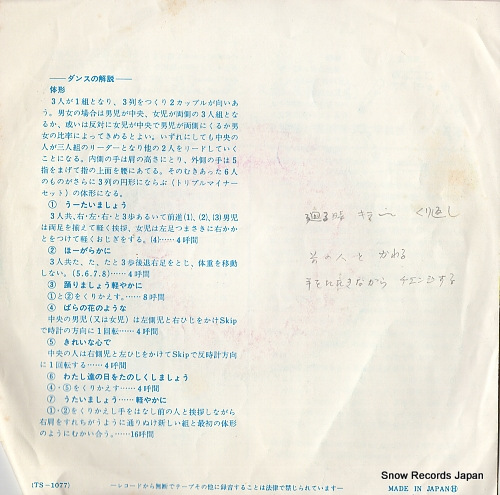 ――ダンスの解説――
体形
3人が1組となり、3列をつくり2カップルが向いあ
う。男女の場合は男児が中央、女児が両側の3人組とな
るか、或いは反対に女児が中央で男児が両側にくるか男
女の比率によってきめるとよい。いずれにしても中央の
人が三人組のリーダーとなり他の2人をリードしていく
ことになる。内側の手は肩の高さにとり、外側の手は5
指をまげて指の上面を腰にあてる。そのむきあった6人
のものがさらに3列の円形にならぶ(トリプルマイナー
セット)の体形になる。
① うーたいましょう
3人共、右・左・右・と3歩あるいて前進(1)、(2)、(3)男児
は両足を揃えて軽く挨拶、女児は左足つまさきに右かか
とをつけて軽くおじぎをする。(4)……4呼間
② ほーがらかに
3人共た、た、たと3歩後退右足をとじ、体重を移動
しない。(5.6.7.8)……4呼間
③ 踊りましょう軽やかに
①と②をくりかえす。……8呼間
④ ばらの花のような
中央の男児(又は女児)は左側児と右ひじをかけSkip
で時計の方向に1回転……4呼間
⑤ きれいな心で
中央の人は右側児と左ひじをかけてSkipで反時計方向
に1回転する……4呼間
⑥ わたし達の日をたのしくしましょう
④・⑤をくりかえす……4呼間
⑦ うたいましょう……軽やかに
①・②をくりかえし手をはなし前の人と挨拶しながら
右肩をすれちがうように通りぬけ新しい組と最初の体形
のようにむかい合う。……16呼間
くり返し
手を
ながら チェンジする
(TS-1077)
―レコードから無断でテープその他に録音することは法律で禁じられています―
MADE IN JAPAN Ⓗ
Snow Records Japan
©Snow Records